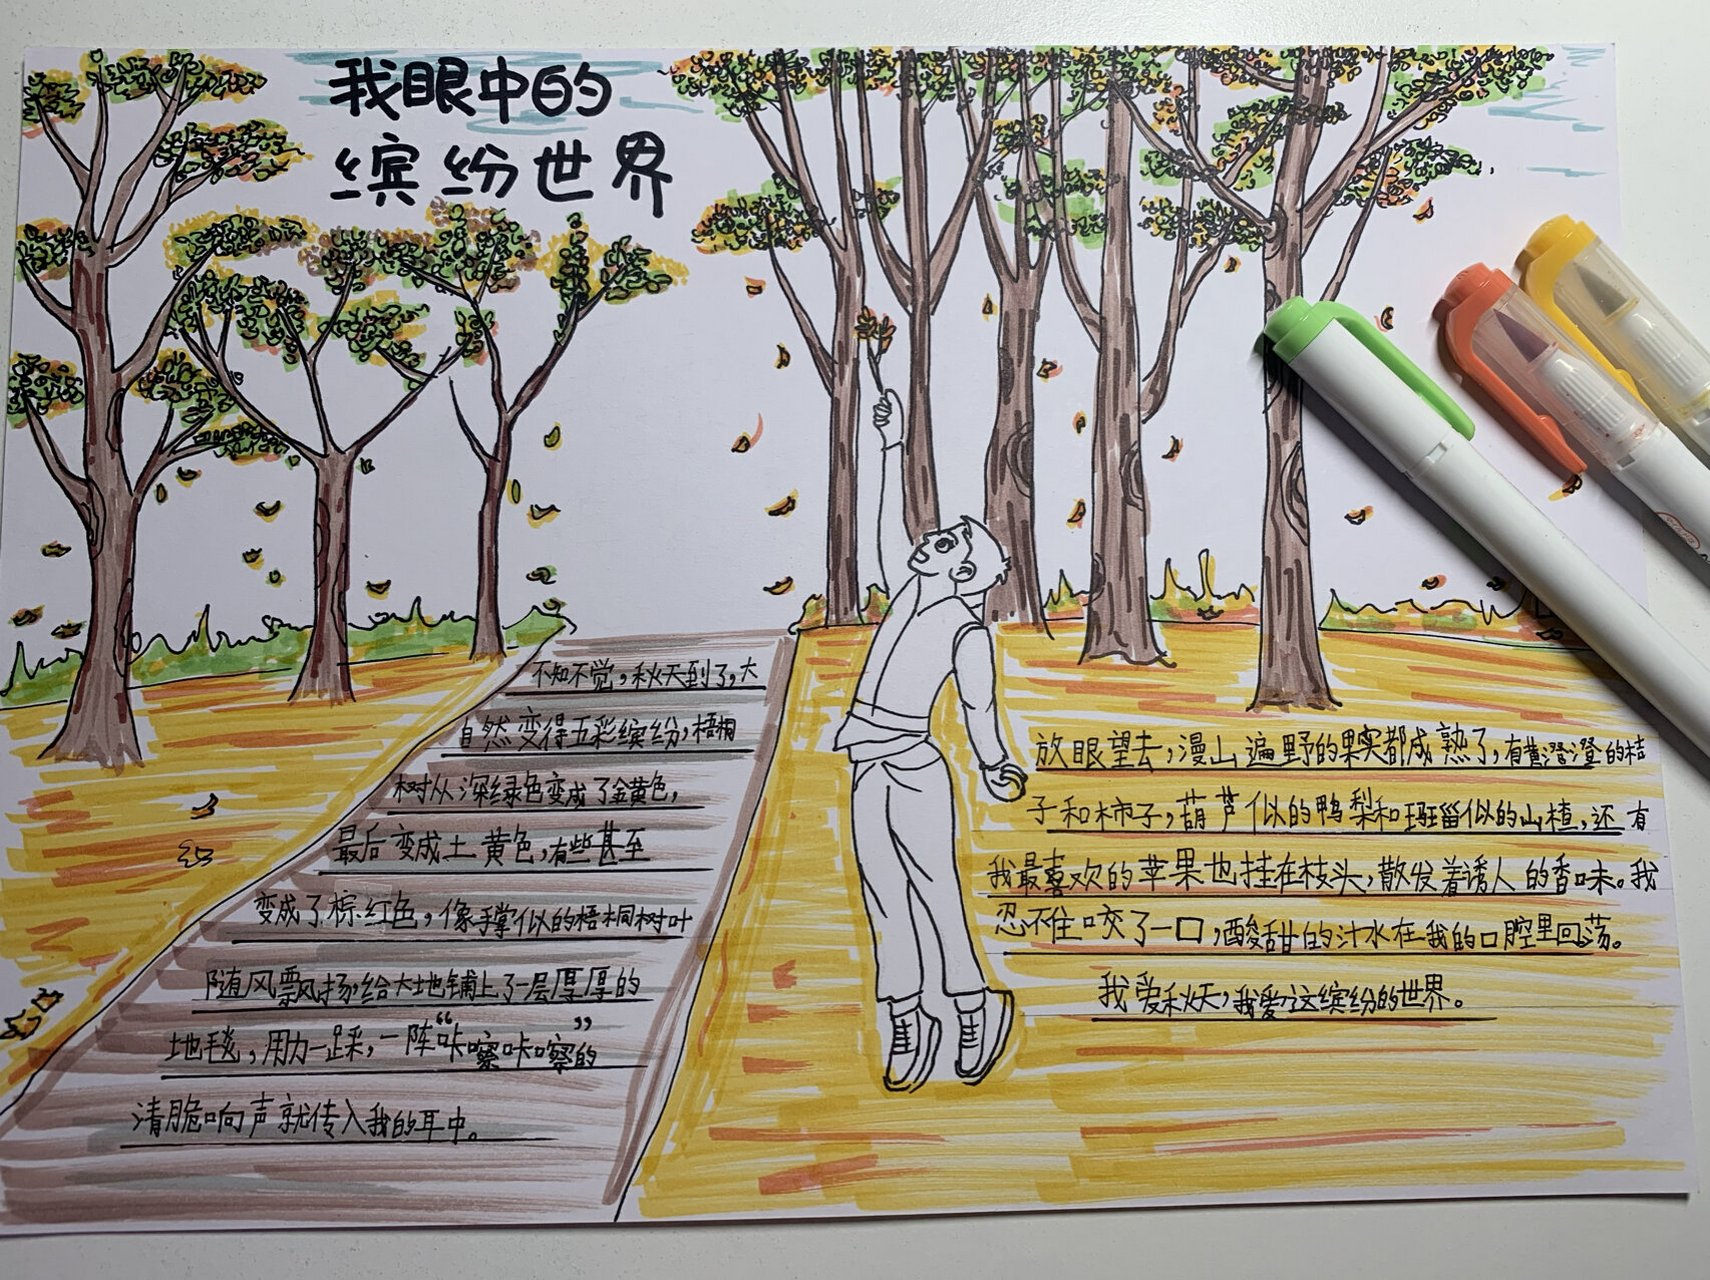 我眼中的
缤纷世界
不知不觉，秋天到了，大
自然变得五彩缤纷，梧桐
树从深绿色变成了金黄色，
最后变成土黄色，有些甚至
变成了棕红色，像手掌似的梧桐树叶
随风飘扬，给大地铺上了一层厚厚的
地毯，用力一踩，一阵“咔嚓咔嚓”的
清脆响声就传入我的耳中。
放眼望去，漫山遍野的果实都成熟了，有黄澄澄的桔
子和柿子，葫芦似的鸭梨和玛瑙似的山楂，还有
我最喜欢的苹果也挂在枝头，散发着诱人的香味。我
忍不住咬了一口，酸甜的汁水在我的口腔里回荡。
我爱秋天，我爱这缤纷的世界。